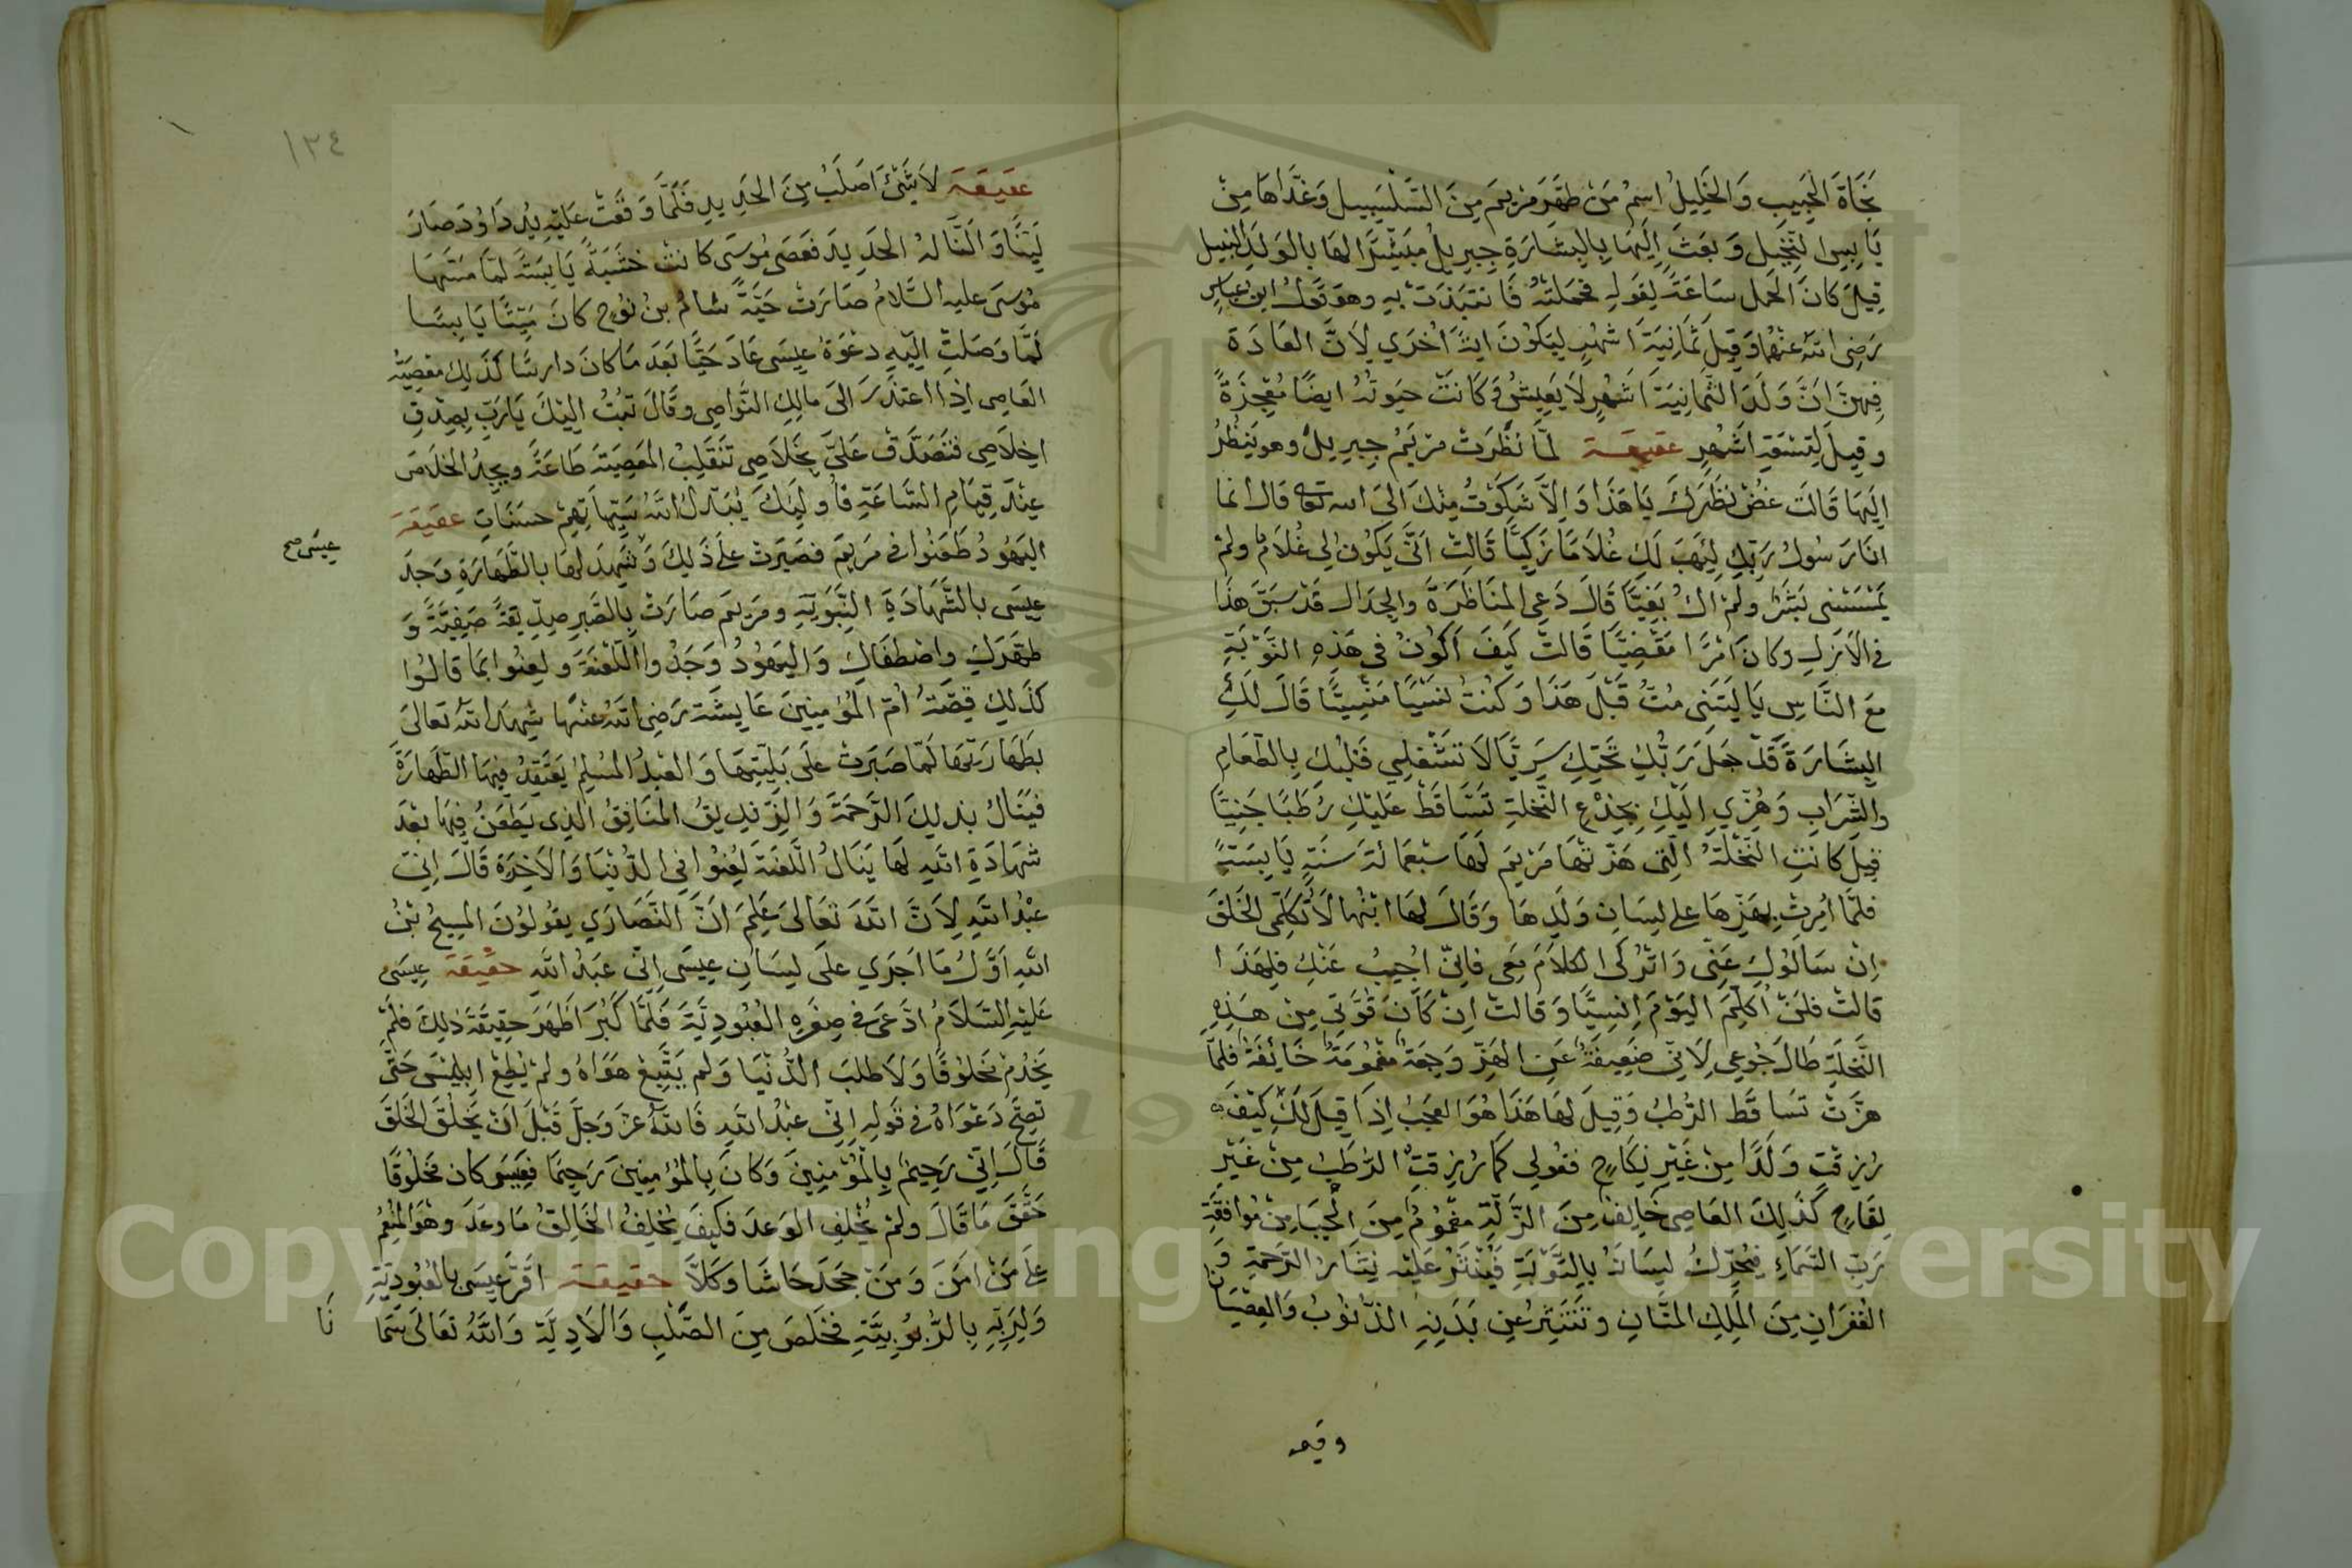 نَجَاةَ الْحَبِيبِ وَالخَلِيلُ اسِمُ مَنْ طَهَّرَ مَرْيَمَ مِنَ السَّلْسَبِيلِ وَغَذَّاهَا مِنْ
يَابِسِ النَّخِيلِ وَبَعَثَ اِلَيْهَا بِالبِشَارَةِ جِبرِيلُ مُبَشِّرًا لهَا بالوَلَدِ النبيل
قِيلَ كانَ الحَمل سَاعَةً لِقَولِهِ فَحَمَلَتْهُ فَانتَبَذَتْ بِهِ وهوَ قَول ابن عباسٍ
رَضِىَ اللهُ عَنْهُمَا وَقِيلَ ثَمَانِيَةَ اَشهُرٍ لِيَكُونَ ايَةً اُخْرَي لِاَنَّ العَادَةَ
فِيهِنَّ اَنَّ وَلَدَ الثَّمَانِيَةَ اَشهُرٍ لَا يَعِيشُ وَكَانَتْ حَيَوتُهُ ايضًا مُعْجِزَةً
وقِيلَ لِتِسْعَةِ اَشْهُرٍ عقيقة لمَّا نَظَرَتْ مَرْيَمُ جِبرِيلَ وهو يَنظُرُ
اِلَيهَا قَالَت غُضَّ نَظَرَكَ يَا هَذَا وَاِلَّا شَكَوْتُ مِنْكَ الىَ الله تعالى قال انما
انَا رَسُولُ رَبِّكِ لِيَهَبَ لَكِ غُلَامًا زَكِيًّا قَالَتْ اَنَّى يَكُونُ لِي غُلَامٌ ولم
يَمْسَسْنِى بَشَرٌ ولَمْ اكُ بَغِيًّا قَالَ دَعِى المنَاظَرَةَ والجِدَال قَدْ سَبَقَ هذَا
فى الاَزَلِ وكانَ اَمْرًا مَقْضِيًّا قَالَتْ كَيفَ اَكُونُ فى هَذِهِ النَّوْبَةِ
مَعَ النَّاسِ يَا لَيْتَنِى مِتُّ قَبْلَ هَذَا وَكُنْتُ نَسْيًا مَنْسِيًّا قَالَ لَكِ
البِشَارَةَ قَدْ جَعَلَ رَبُّكِ تَحْتَكِ سَرِيًّا لَا تَشْغَلِي قَلْبَكِ بِالطَّعَامِ
والشَّرَابِ وَهُزِّي اِلَيْكِ بِجِذْعِ النَّخلةِ تَسَّاقَطْ عَلَيْكِ رُطَبًا جَنِيًّا
قِيلَ كانتِ النَّخْلَةُ الَّتِى هَزَّتْهَا مَرْيَم لَهَا سَبْعَمائَةَ سَنَةٍ يَابِسَةً
فلمَّا اُمِرَتْ بِهَزِّهَا على لِسَانِ وَلَدِهَا وَقَالَ لهَا ابْنُهَا لَا تُكَلِّمِى الخَلقَ
اِنْ سَالُوكِ عَنِّى وَاتْرُكى الكلَامَ مَعِى فَاِنّى اُجِيبُ عَنْكِ فلِهَذَا
قَالَتْ فلَنْ اُكَلِّمَ اليَوْمَ اِنْسِيًّا وَقَالت اِنْ كَانَ قُوَّتِى مِنْ هَذِهِ
النَّخلَةِ طَالَ جُوعِى لِاَنّى ضَعِيفَةٌ عَنِ الهَزِّ وَجِعَةٌ مَغمُومَةٌ خَائِفَةٌ فَلَمَّا
هزَّتْ تَسَاقَطَ الرُّطَبُ وَقِيلَ لهَا هَذَا هُوَ العَجَبُ اِذَا قِيلَ لَكِ كَيْفَ
رُزِقتِ وَلَدًا مِنْ غَيْرِ نِكَاحٍ فقُولِى كمَا رُزِقتُ الرُّطَبَ مِنْ غَيْرِ
لِقَاحٍ كَذَلِكَ العَاصِى خَائِفٌ مِنَ الزَّلَّةِ مَغْمُومٌ مِنَ الْحَيَا مِنْ مُوافَقَةِ
رَبِّ السَّمَاءِ فيُحَرِّكُ لِسَانَهُ بِالتَّوْبَةِ فَيُنْثَرُ عَلَيْهِ نِثَارُ الرَّحْمَةِ وَ
الغُفْرَانِ مِنَ المَلِكِ المَنَّانِ وتَنتَثِرُ عَن بَدَنِهِ الذُّنُوبُ وَالعِصْيَانُ
١٣٤
عقيقة لَا شَىْءَ اَصلَبُ مِنَ الحَدِيدِ فَلَمَّا وَقَعَتْ عَلَيْهِ يَدُ دَاوُدَ صَارَ
لَيِّنًا وَاَلَنَّا لَهُ الحَدِيدَ فعَصَى مُوسَى كانت خشَبَةً يَابِسَةً لمّا مَسَّهَا
مُوسَى عليه السَّلامُ صَارَتْ حَيَّةً سَامُ بنُ نُوح كانَ مَيِّتًا يَابِسًا
لمَّا وَصَلَتْ اِلَيْهِ دَعْوَةُ عِيسَى عَادَ حَيًّا بَعْدَ مَا كانَ دارسًا كذَلِكَ مَعْصِيَةُ
العَاصِى اِذَا اعتَذَرَ الىَ مالِكِ النَّواصِى وقَالَ تبْتُ اِلَيْكَ يَا رَبِّ بِصِدْقِ
اخِلَاصِى فتَصَدَّقْ عَلَيَّ بِخَلَاصِى تَنْقَلِبُ المعْصِيَةُ طَاعَةً ويَجِدُ الخَلَاصَ
عِنْدَ قِيَامِ السَّاعَةِ فَاُولَئِكَ يُبَدِّلُ اللهُ سَيِّئَاتِهِمْ حسَنَاتٍ عقيقة
اليَهُودُ طَعَنُوا فى مَرْيَمَ فصَبَرَتْ عَلَى ذَلِكَ وَشَهِدَ لهَا بالطَّهَارَةِ وَجَدَ
عيسى صح
عِيسَى بالشَّهَادَةِ النَّبَوِيَّةِ ومَرْيَمَ صَارَتْ بِالصَّبرِ صِدِّيقةً صَفِيَّةً وَ
طَهَّرَكِ واصْطَفَاكِ وَاليَهُودُ وَجَدُوا اللَّعْنَةَ ولُعِنُوا بمَا قَالُوا
كذَلِكَ قِصَّةُ اُمّ المُؤمِنِينَ عَايِشَة رَضِىَ اللهُ عَنْهَا شَهِدَ اللهُ تَعَالىَ
بطَهَارَتِهَا لَمَّا صَبَرَتْ عَلَى بَلِيَّتِهَا وَالعَبْدُ المُسلِمُ يَعْتَقِدُ فِيهَا الطَّهَارَةَ
فيَنَالُ بذلِكَ الرَّحْمَةَ وَالزِّندِيقُ المنَافِقُ الَّذِى يَطْعَنُ فِيهَا بَعْدَ
شهَادَةِ اللهِ لهَا يَنَالُ اللَّعْنَةَ لُعِنُوا فِى الدُّنْيَا وَالاَخِرَةِ قَالَ اِنّىِ
عَبْدُ اللهِ لِاَنَّ اللهَ تَعَالىَ عَلِمَ اَنَّ النَّصَارَي يَقُولُونَ المَسِيحُ بْنُ
اللهِ اَوَّلُ مَا اَجرَي عَلَى لِسَانِ عِيسَى اِنّى عَبْدُ اللهِ حقيقة عِيسَى
عَلَيْهِ السَّلَامُ ادَّعَى فى صِغَرِهِ العُبُودِيَّةَ فَلمَّا كَبُرَ اَظْهَرَ حقِيقَةَ ذلِكَ فلَمْ
يَخْدُمْ مَخلُوقًا وَلَا طلَبَ الدُّنْيَا وَلم يَتَّبِعْ هَوَاهُ ولم يُطِعْ اِبلِيسَ حَتَّى
تصِحَّ دَعْوَاهُ فى قَولِهِ اِنّى عَبْدُ اللهِ فَاللهُ عزَّ وَجَلَّ قَبْلَ اَنْ يَخْلُقَ الخَلقَ
قَالَ اِنّى رَحِيمٌ بِالْمُؤْمِنِينَ وَكانَ بِالمُؤْمِنِينَ رَحِيمًا فعِيسَى كان مَخلُوقًا
حَقَّقَ مَا قَالَ ولم يُخْلِفِ الوَعدَ فكيفَ يُخلِفُ الخَالِقُ مَا وَعَدَ وهُوَ المُنْعِمُ
عَلَى مَنْ اٰمَنَ وَمَنْ جَحَدَ حَاشَا وَكَلَّا حقيقة اقَرَّ عِيسَى بالعُبُودِيَّةِ
وَلِرَبِّهِ بِالرُّبُوبِيَّةِ فخَلَصَ مِنَ الصَّلْبِ وَالاَذِيَّة وَاللهُ تَعَالىَ سَمَّا
نَا
Copyright © King Saud University